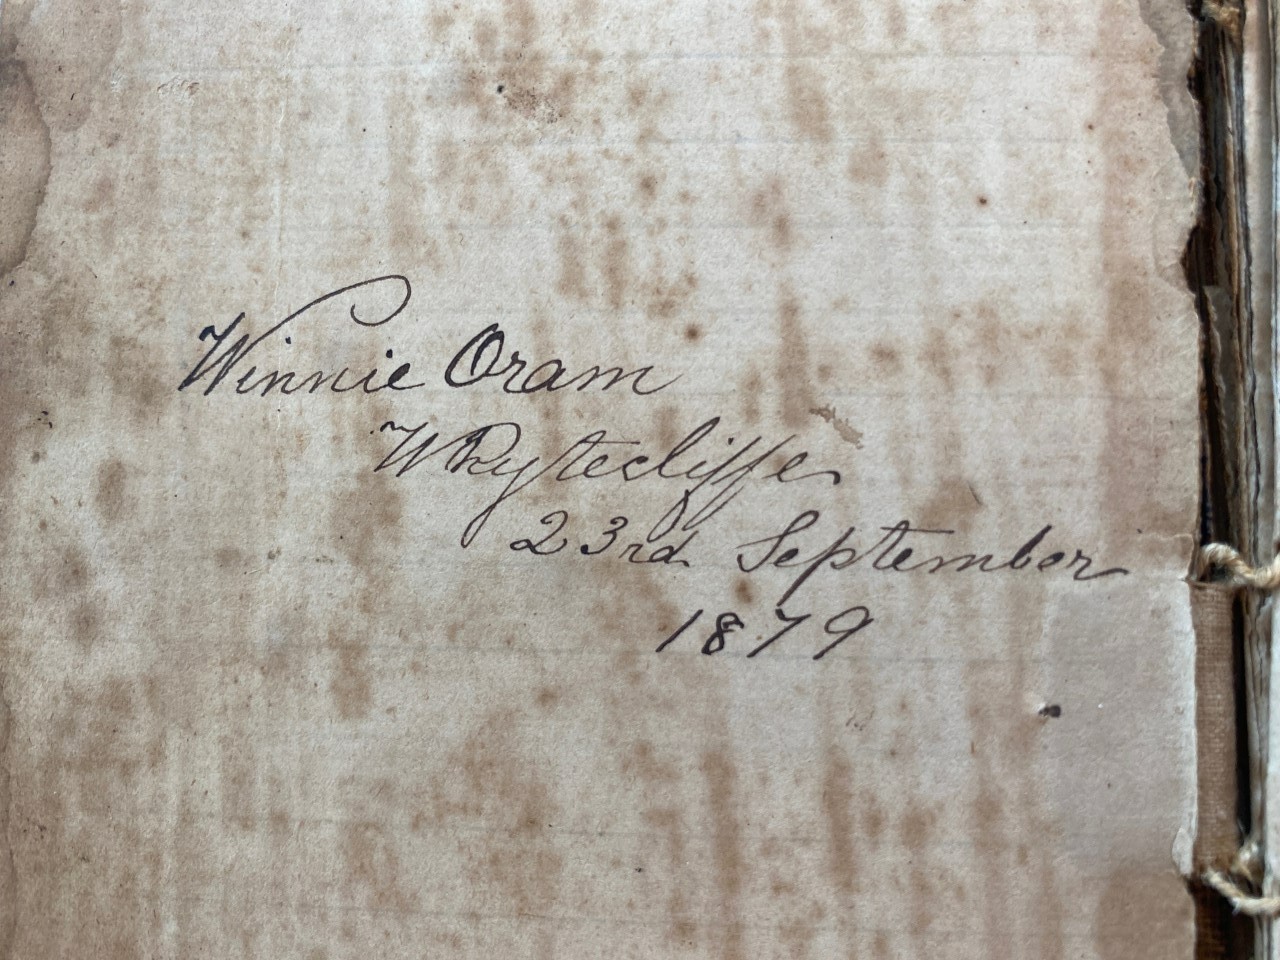 Winnie Oram
Whytecliffe
23rd September
1879